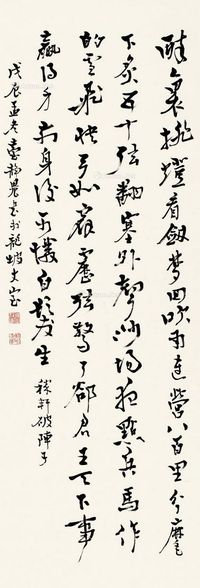 醉裏挑鐙看劍夢回吹角連營八百里分麾
下炙五十弦翻塞外聲沙場秋點兵馬作
的盧飛快弓如霹靂弦驚了卻君王天下事
贏得生前身後名可憐白髮生 稼軒破陣子
戊辰孟冬臺靜農書於龍坡丈室